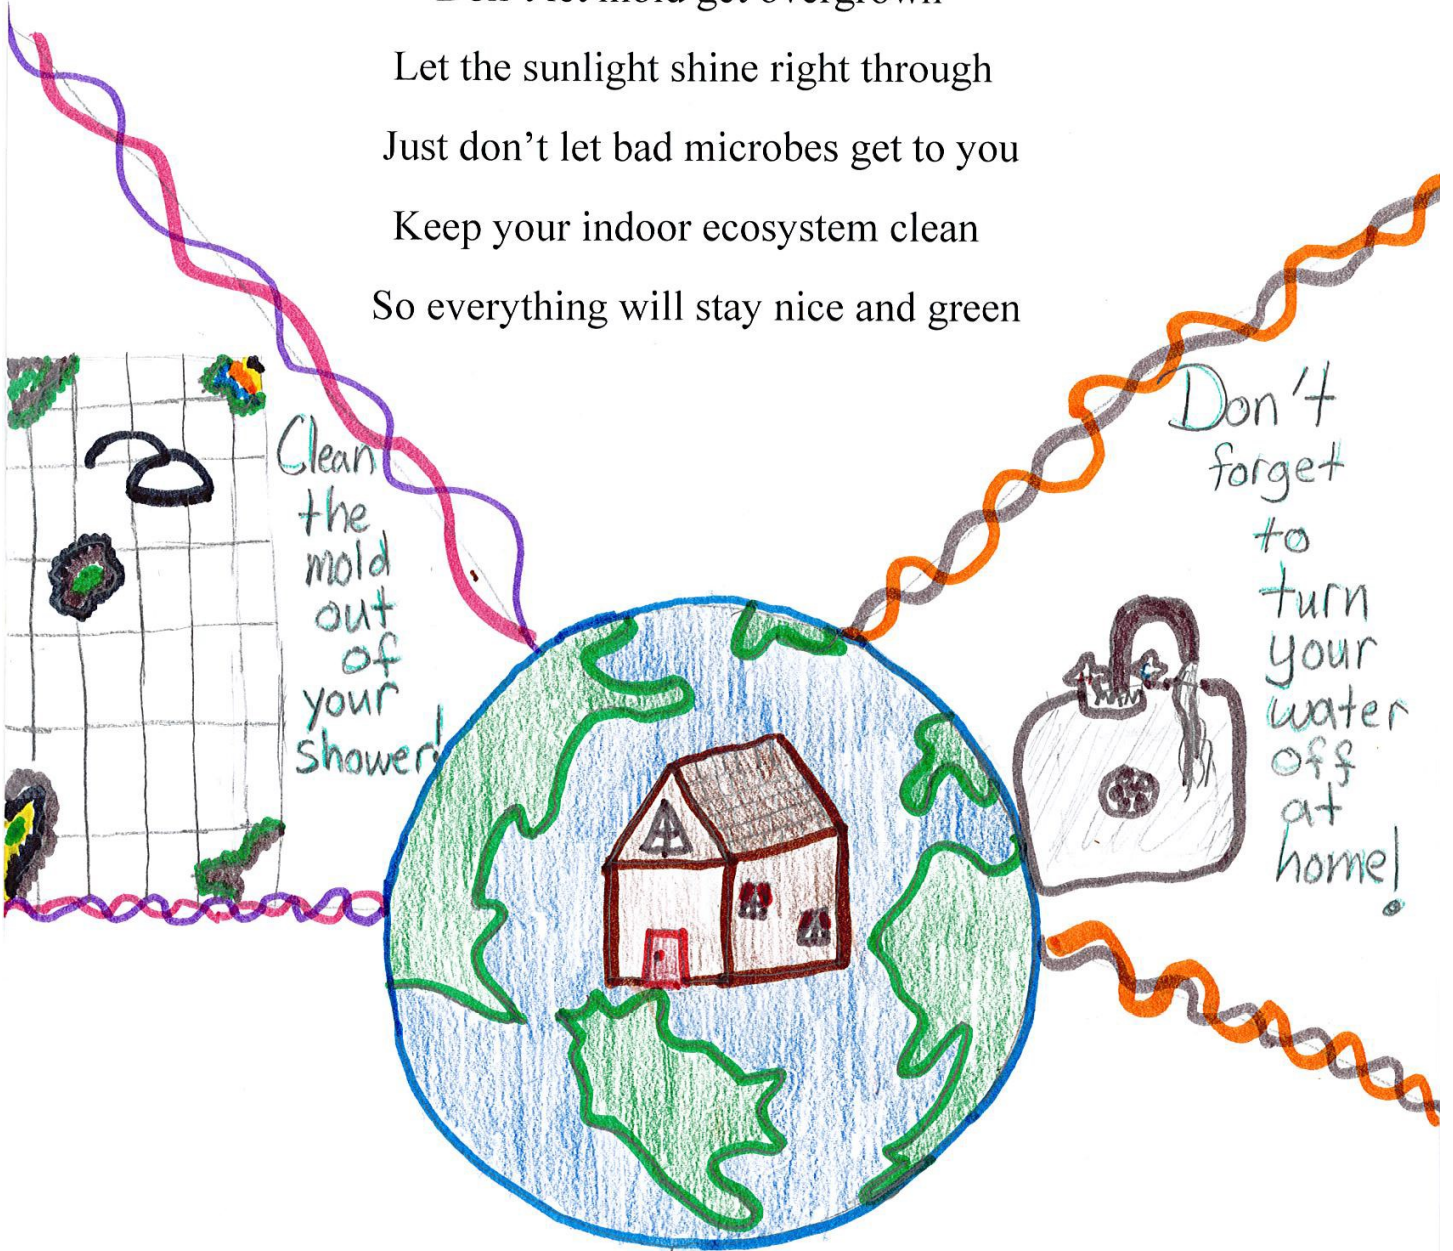 Don't let mold get overgrown
Let the sunlight shine right through
Just don’t let bad microbes get to you
Keep your indoor ecosystem clean
So everything will stay nice and green
Clean
the
mold
out
of
your
shower!
Don't
forget
to
turn
your
water
off
at
home!